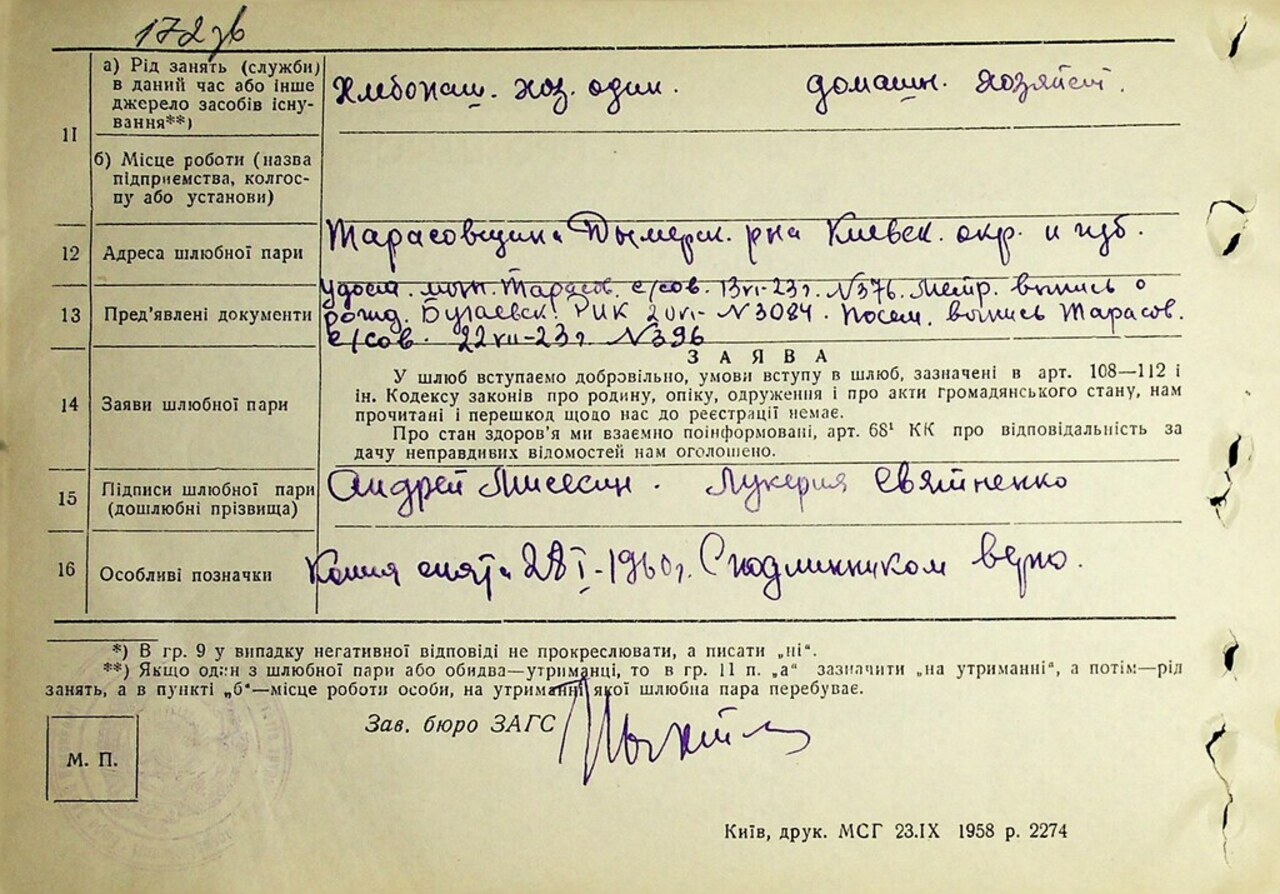 172 зв
а) Рід занять (служби)
в даний час або інше
джерело засобів існу-
вання**)
Хлебопаш. хоз. один. домашн. хозяйст.
11
б) Місце роботи (назва
підприємства, колгос-
пу або установи)
12 Адреса шлюбної пари Тарасовщина Дымерск. р-на Киевск. окр. и губ.
13 Пред'явлені документи
Удост. личн. Тарасов. с/сов. 13 VI-23 г. №376. Метр. выпись о
рожд. Бугаевск. РИК 20 VI- №3084. Посем. выпись Тарасов.
с/сов. 22 VII-23 г. №396
14 Заяви шлюбної пари
ЗАЯВА
У шлюб вступаємо добровільно, умови вступу в шлюб, зазначені в арт. 108—112 і
ін. Кодексу законів про родину, опіку, одруження і про акти громадянського стану, нам
прочитані і перешкод щодо нас до реєстрації немає.
Про стан здоров'я ми взаємно поінформовані, арт. 68¹ КК про відповідальність за
дачу неправдивих відомостей нам оголошено.
15 Підписи шлюбної пари
(дошлюбні прізвища)
Андрей Лукерия Святненко
16 Особливі позначки Копия снята 28 I-1960 г. С подлинником верно.
*) В гр. 9 у випадку негативної відповіді не прокреслювати, а писати „ні“.
**) Якщо один з шлюбної пари або обидва—утриманці, то в гр. 11 п. „а“ зазначити „на утриманні“, а потім—рід
занять, а в пункті „б“—місце роботи особи, на утриманні якої шлюбна пара перебуває.
Зав. бюро ЗАГС
М. П.
Київ, друк. МСГ 23.IX 1958 р. 2274